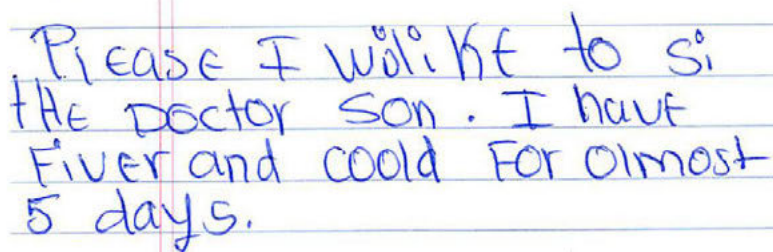 Please I woliKE to si
tHE Doctor son. I have
FiVEr and coold For olmost
5 days.